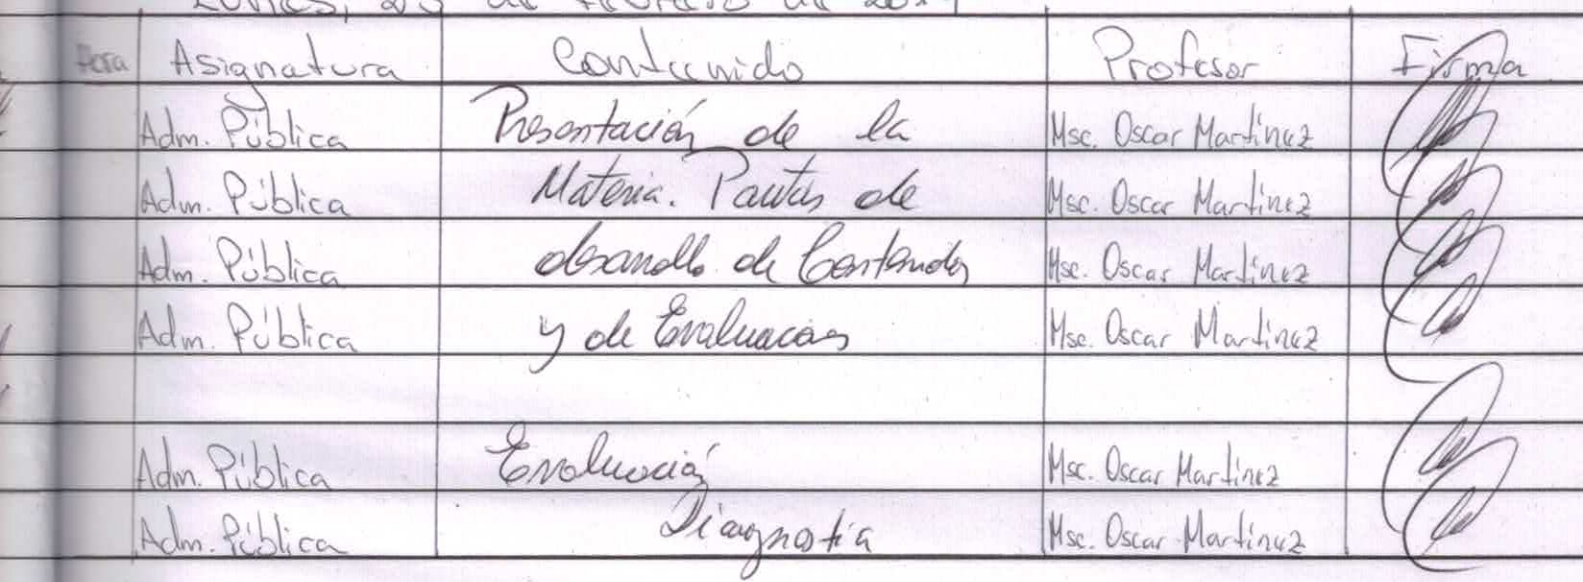 Hora Asignatura Contenido Profesor Firma
Adm. Pública Presentación de la Msc. Oscar Martínez
Adm. Pública Materia. Pautas de Msc. Oscar Martínez
Adm. Pública desarrollo de Contenidos Msc. Oscar Martínez
Adm. Pública y de Evaluación Msc. Oscar Martínez
Adm. Pública Evaluación Msc. Oscar Martínez
Adm. Pública Diagnostia Msc. Oscar Martínez